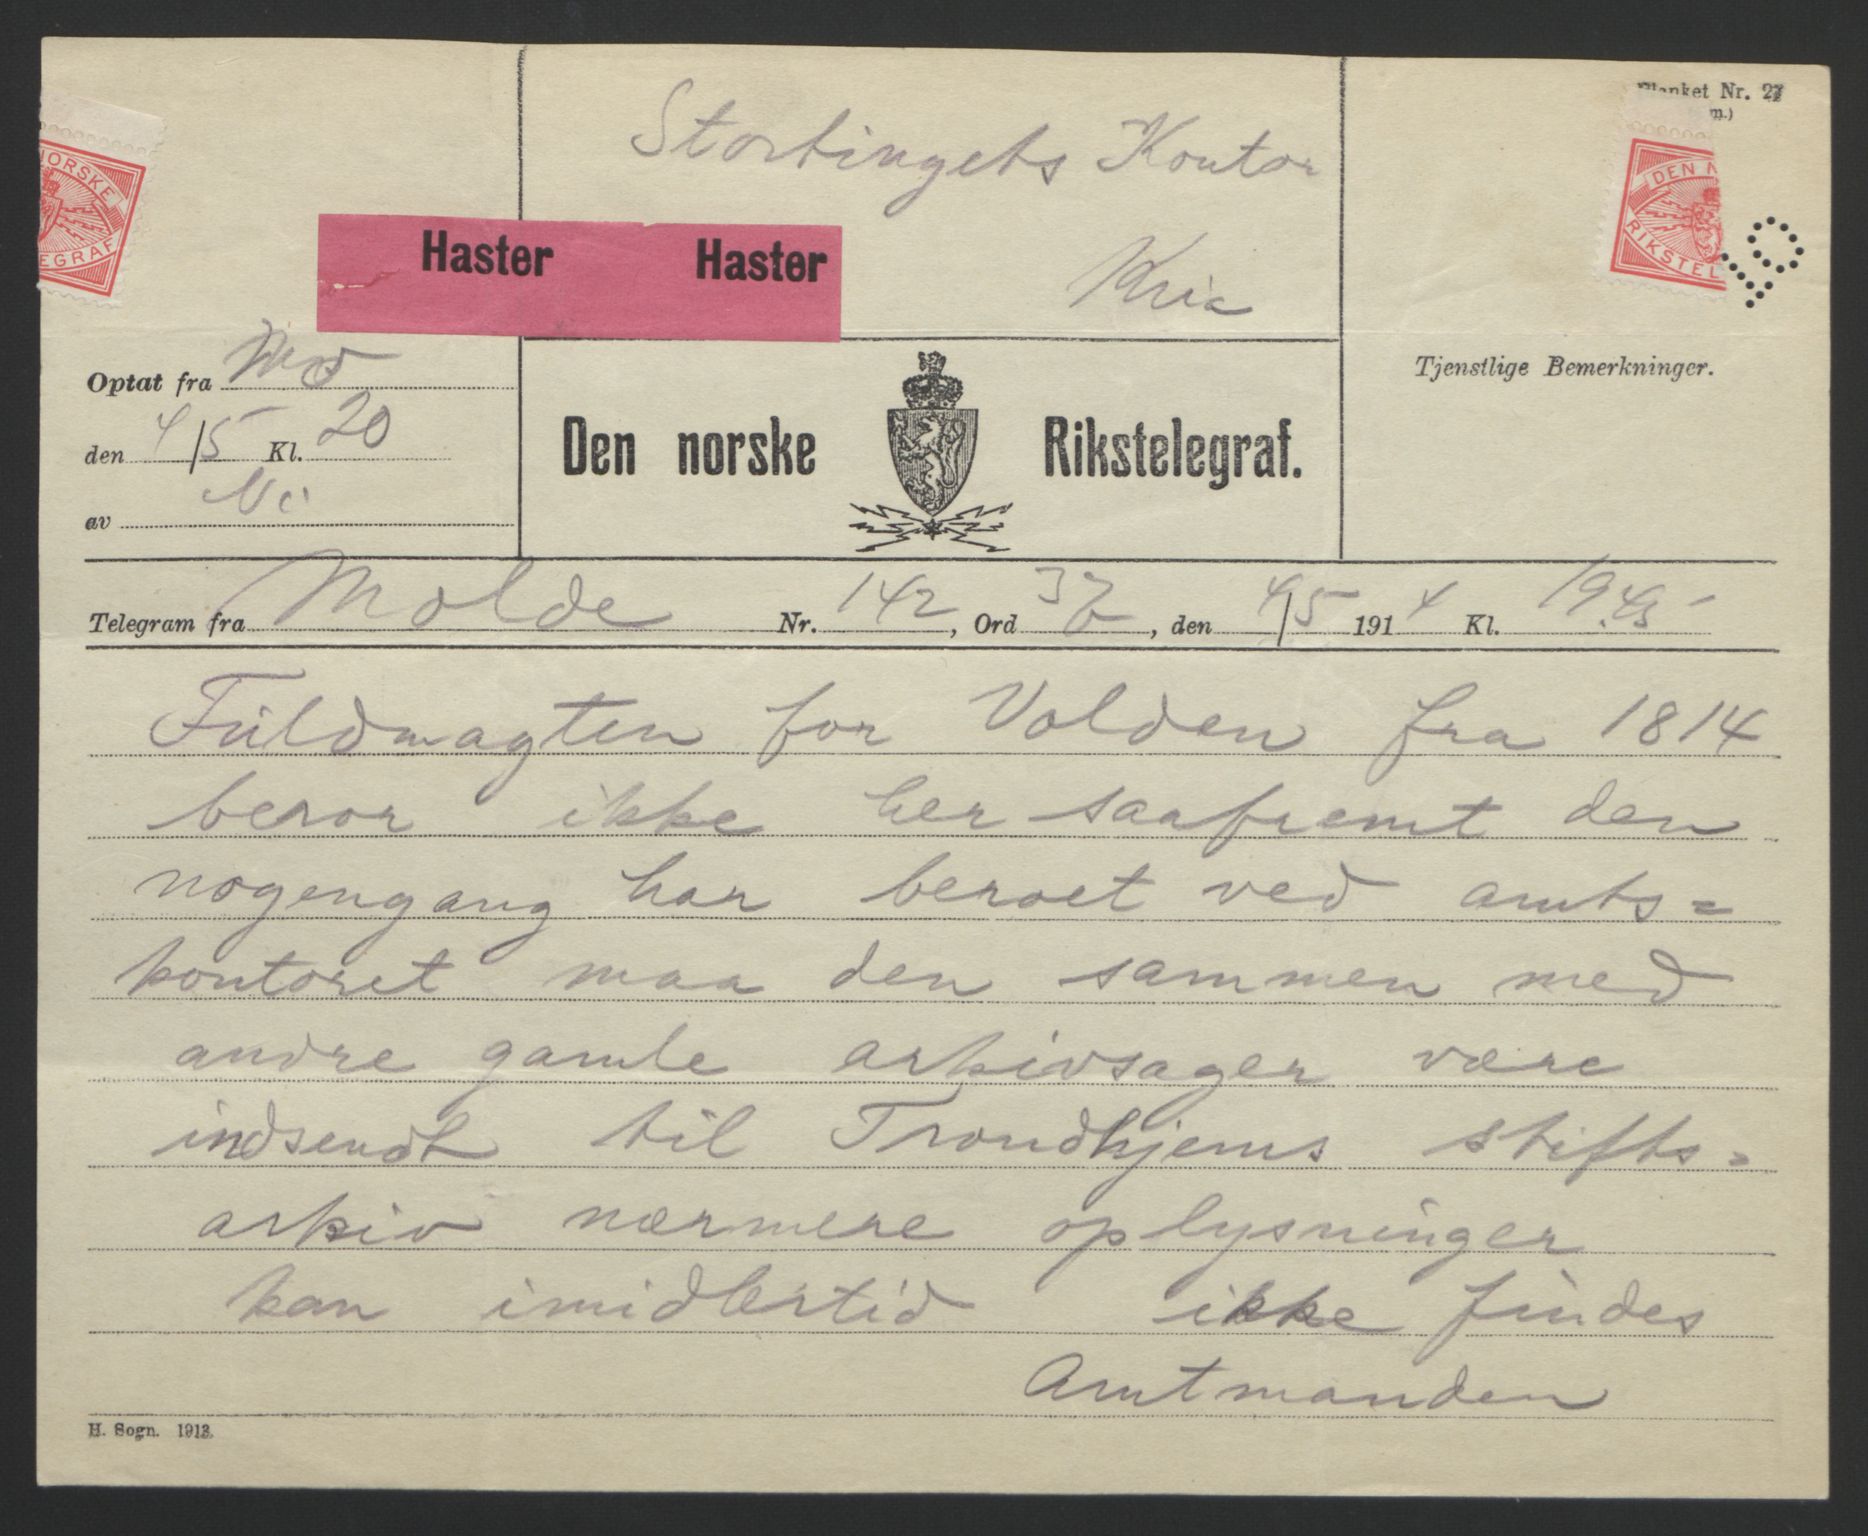 Blanket Nr. 27
m.)
NORSKE
EGRAF
DEN N
RIKSTEL
Stortingets Kontor
Haster Haster
Kria
Optat fra Mo
den 4/5 Kl. 20
av
Den norske Rikstelegraf.
Tjenstlige Bemerkninger.
Telegram fra Molde Nr. 142, Ord, den 4/5 1914 Kl. 19.45
Fuldmagten for Volden fra 1814
beror ikke her saafremt den
nogengang har beroet ved amts=
kontoret maa den sammen med
andre gamle arkivsager være
indsendt til Trondhjems stifts=
arkiv nærmere oplysninger
kan imidlertid ikke findes
Amtmanden
H. Sogn. 1913.